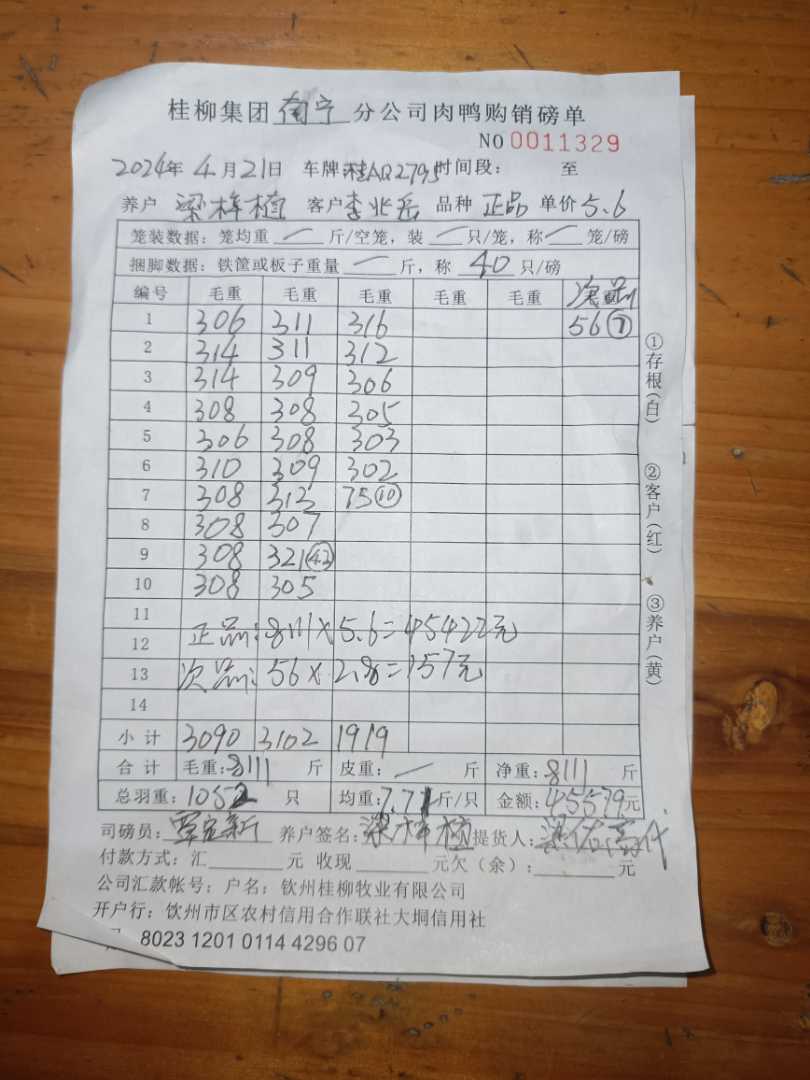 桂柳集团 南宁 分公司肉鸭购销磅单
NO 0011329
2024年 4月21日 车牌:桂AQ2795 时间段: 至
养户 梁梓植 客户 李兆岳 品种 正品 单价 5.6
笼装数据: 笼均重 — 斤/空笼, 装 — 只/笼, 称 — 笼/磅
捆脚数据: 铁筐或板子重量 — 斤, 称 40 只/磅
编号 毛重 毛重 毛重 毛重 毛重 次品
1 306 311 316 56⑦
2 314 311 312
3 314 309 306
4 308 308 305
5 306 308 303
6 310 309 302
7 308 312 75⑩
8 308 307
9 308 321㊷
10 308 305
11
12 正品: 8111×5.6=45422元
13 次品: 56×2.8=157元
14
小计 3090 3102 1919
合计 毛重: 8111 斤 皮重: — 斤 净重: 8111 斤
总羽重: 1052 只 均重: 7.71斤/只 金额: 45579元
司磅员: 养户签名: 梁梓植 提货人:
付款方式: 汇 元 收现 元欠(余): 元
公司汇款帐号: 户名: 钦州桂柳牧业有限公司
开户行: 钦州市区农村信用合作联社大垌信用社
8023 1201 0114 4296 07
①存根(白)
②客户(红)
③养户(黄)